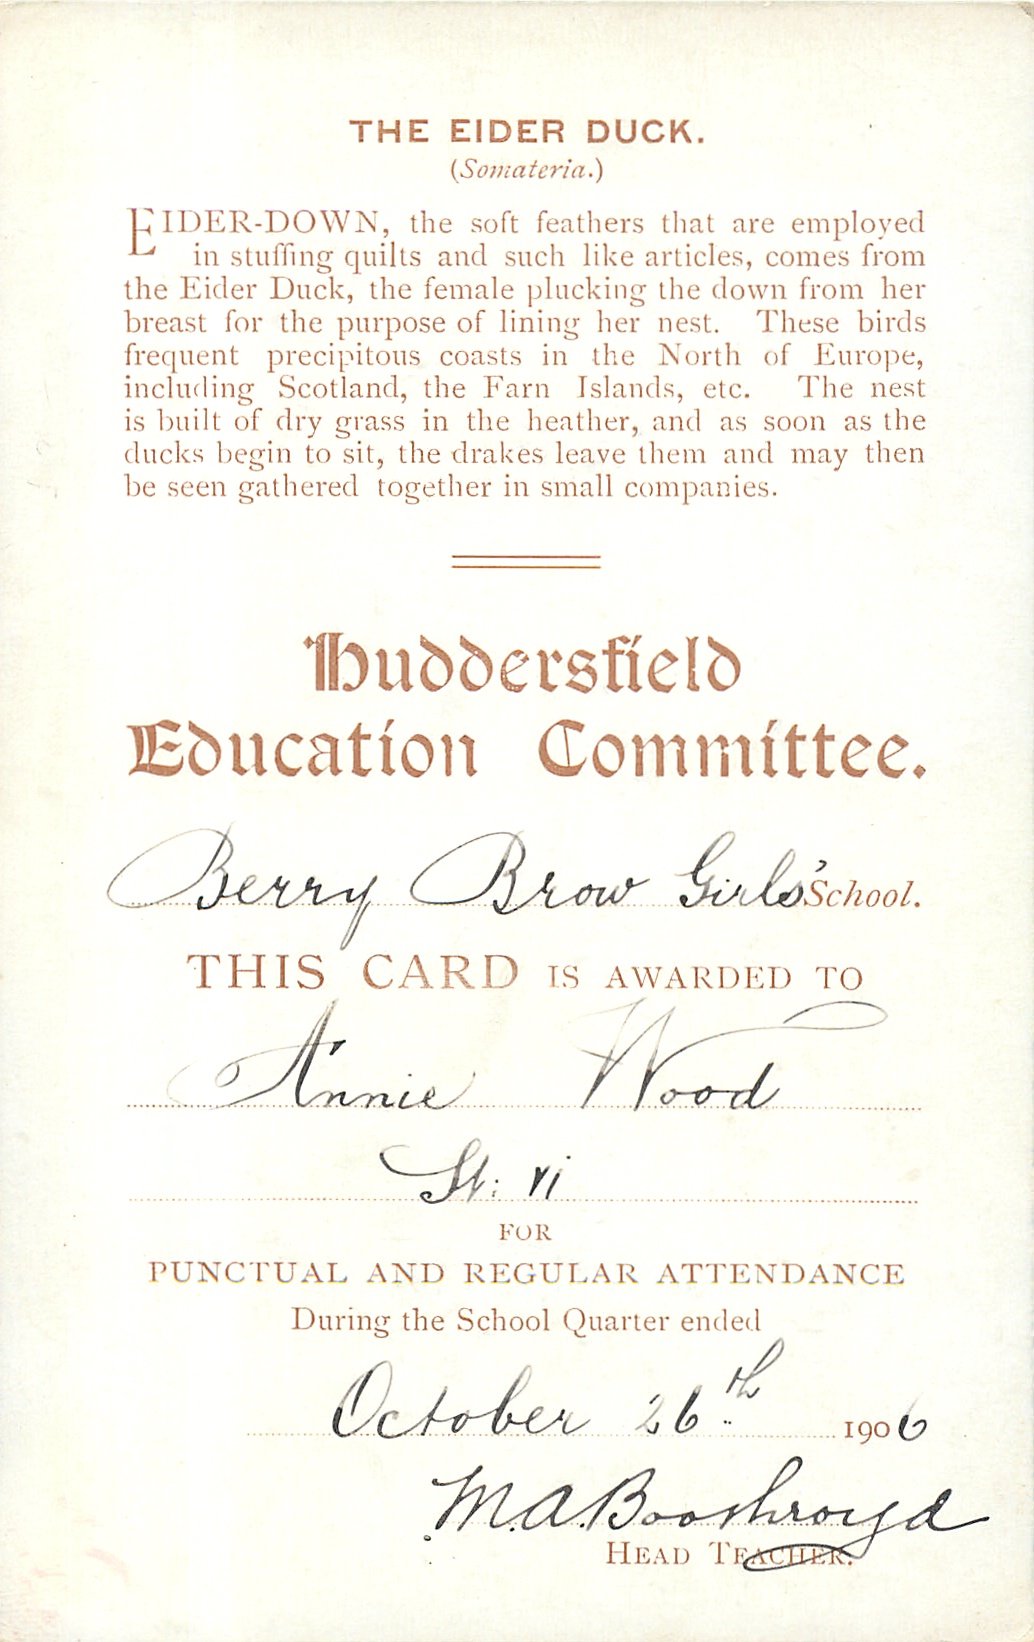 THE EIDER DUCK.
(Somateria.)
EIDER-DOWN, the soft feathers that are employed
in stuffing quilts and such like articles, comes from
the Eider Duck, the female plucking the down from her
breast for the purpose of lining her nest. These birds
frequent precipitous coasts in the North of Europe,
including Scotland, the Farn Islands, etc. The nest
is built of dry grass in the heather, and as soon as the
ducks begin to sit, the drakes leave them and may then
be seen gathered together in small companies.
Huddersfield
Education Committee.
Berry Brow Girls' School.
THIS CARD IS AWARDED TO
Annie Wood
St: vi
FOR
PUNCTUAL AND REGULAR ATTENDANCE
During the School Quarter ended
October 26th 1906
M.A. Boothroyd
HEAD TEACHER.